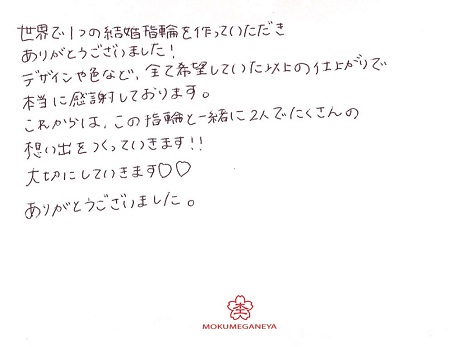 世界で1つの結婚指輪を作っていただき
ありがとうございました!
デザインや色など、全て希望していた以上の仕上がりで
本当に感謝しております。
これからは、この指輪と一緒に2人でたくさんの
想い出をつくっていきます!!
大切にしていきます♡♡
ありがとうございました。
MOKUMEGANEYA